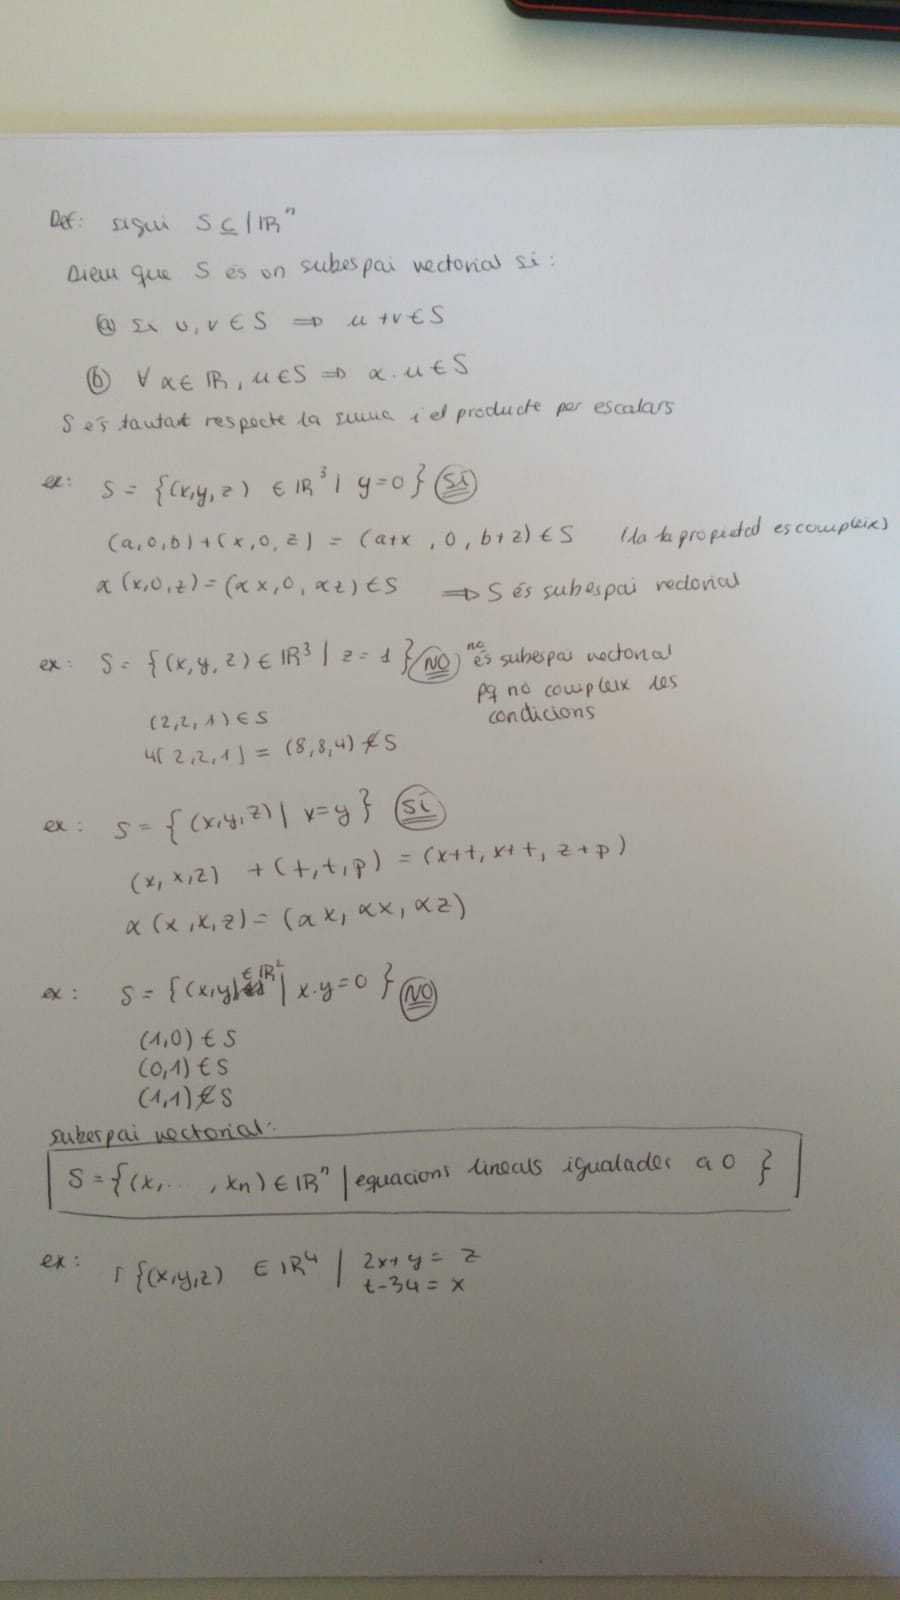 Def: sigui S ⊆ IRⁿ
Diem que S és un subespai vectorial si:
ⓐ si u, v ∈ S ⇒ u + v ∈ S
ⓑ ∀ α ∈ IR, u ∈ S ⇒ α · u ∈ S
S és tautart respecte la suma i el producte per escalars
ex: S = {(x,y,z) ∈ IR³ | y=0} SÍ
(a,0,b) + (x,0,z) = (a+x, 0, b+z) ∈ S (la 1a propietad es compleix)
α (x,0,z) = (αx, 0, αz) ∈ S ⇒ S és subespai vectorial
ex: S = {(x,y,z) ∈ IR³ | z = 1} NO no és subespai vectorial
pq no compleix les
condicions
(2,2,1) ∈ S
4(2,2,1) = (8,8,4) ∉ S
ex: S = {(x,y,z) | x=y} SÍ
(x,x,z) + (t,t,p) = (x+t, x+t, z+p)
α (x,x,z) = (αx, αx, αz)
ex: S = {(x,y) ∈ IR² | x·y=0} NO
(1,0) ∈ S
(0,1) ∈ S
(1,1) ∉ S
subespai vectorial:
S = {(x, ... , xn) ∈ IRⁿ | equacions lineals igualades a 0}
ex: {(x,y,z) ∈ IR⁴ | 2x+y = z
t-3y = x